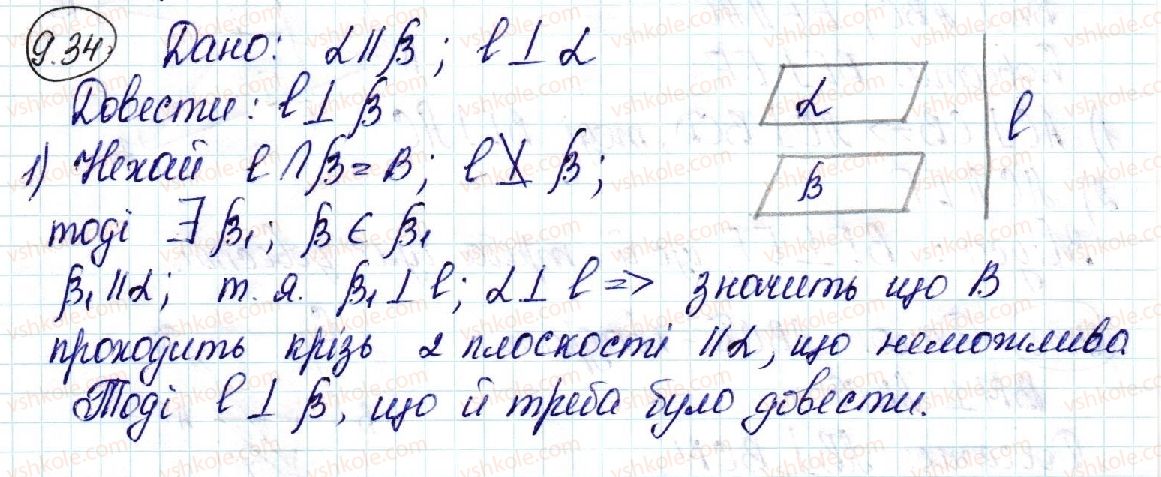 9.34 Дано: α || β ; l ⊥ α
Довести: l ⊥ β
α
l
β
1) Нехай l ∩ β = B; l ⊥̸ β;
тоді ∃ β₁; β ∈ β₁
β₁ || α; т.я. β₁ ⊥ l; α ⊥ l => значить що В
проходить крізь 2 плоскості || α, що неможлива
Тоді l ⊥ β, що й треба було довести.